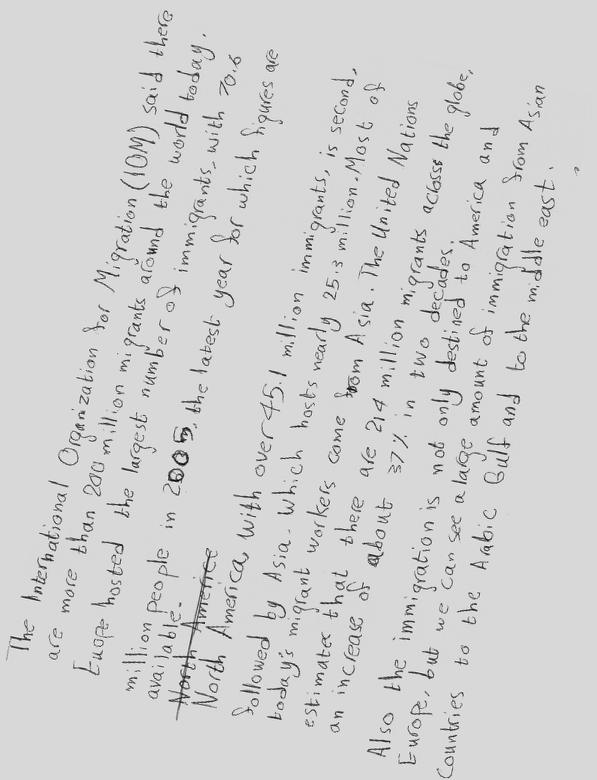 The International Organization for Migration (IOM) said there
are more than 200 million migrants around the world today.
Europe hosted the largest number of immigrants, with 70.6
million people in 2005, the latest year for which figures are
available.
North America
North America, with over 45.1 million immigrants, is second,
followed by Asia. which hosts nearly 25.3 million. Most of
today's migrant workers come from Asia. The United Nations
estimates that there are 214 million migrants across the globe,
an increase of about 37% in two decades.
Also the immigration is not only destined to America and
Europe, but we can see a large amount of immigration from Asian
Countries to the Arabic Gulf and to the middle east.